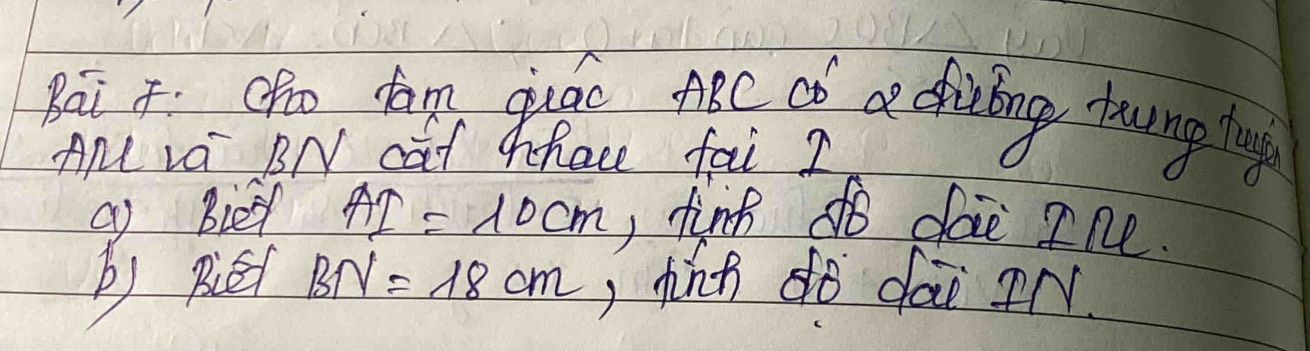 Bài 7: Cho tam giác ABC có 2 đường trung tuyến
AM và BN cắt nhau tại I
a) Biết AI = 10cm, tính độ dài IM.
b) Biết BN = 18 cm, tính độ dài IN.